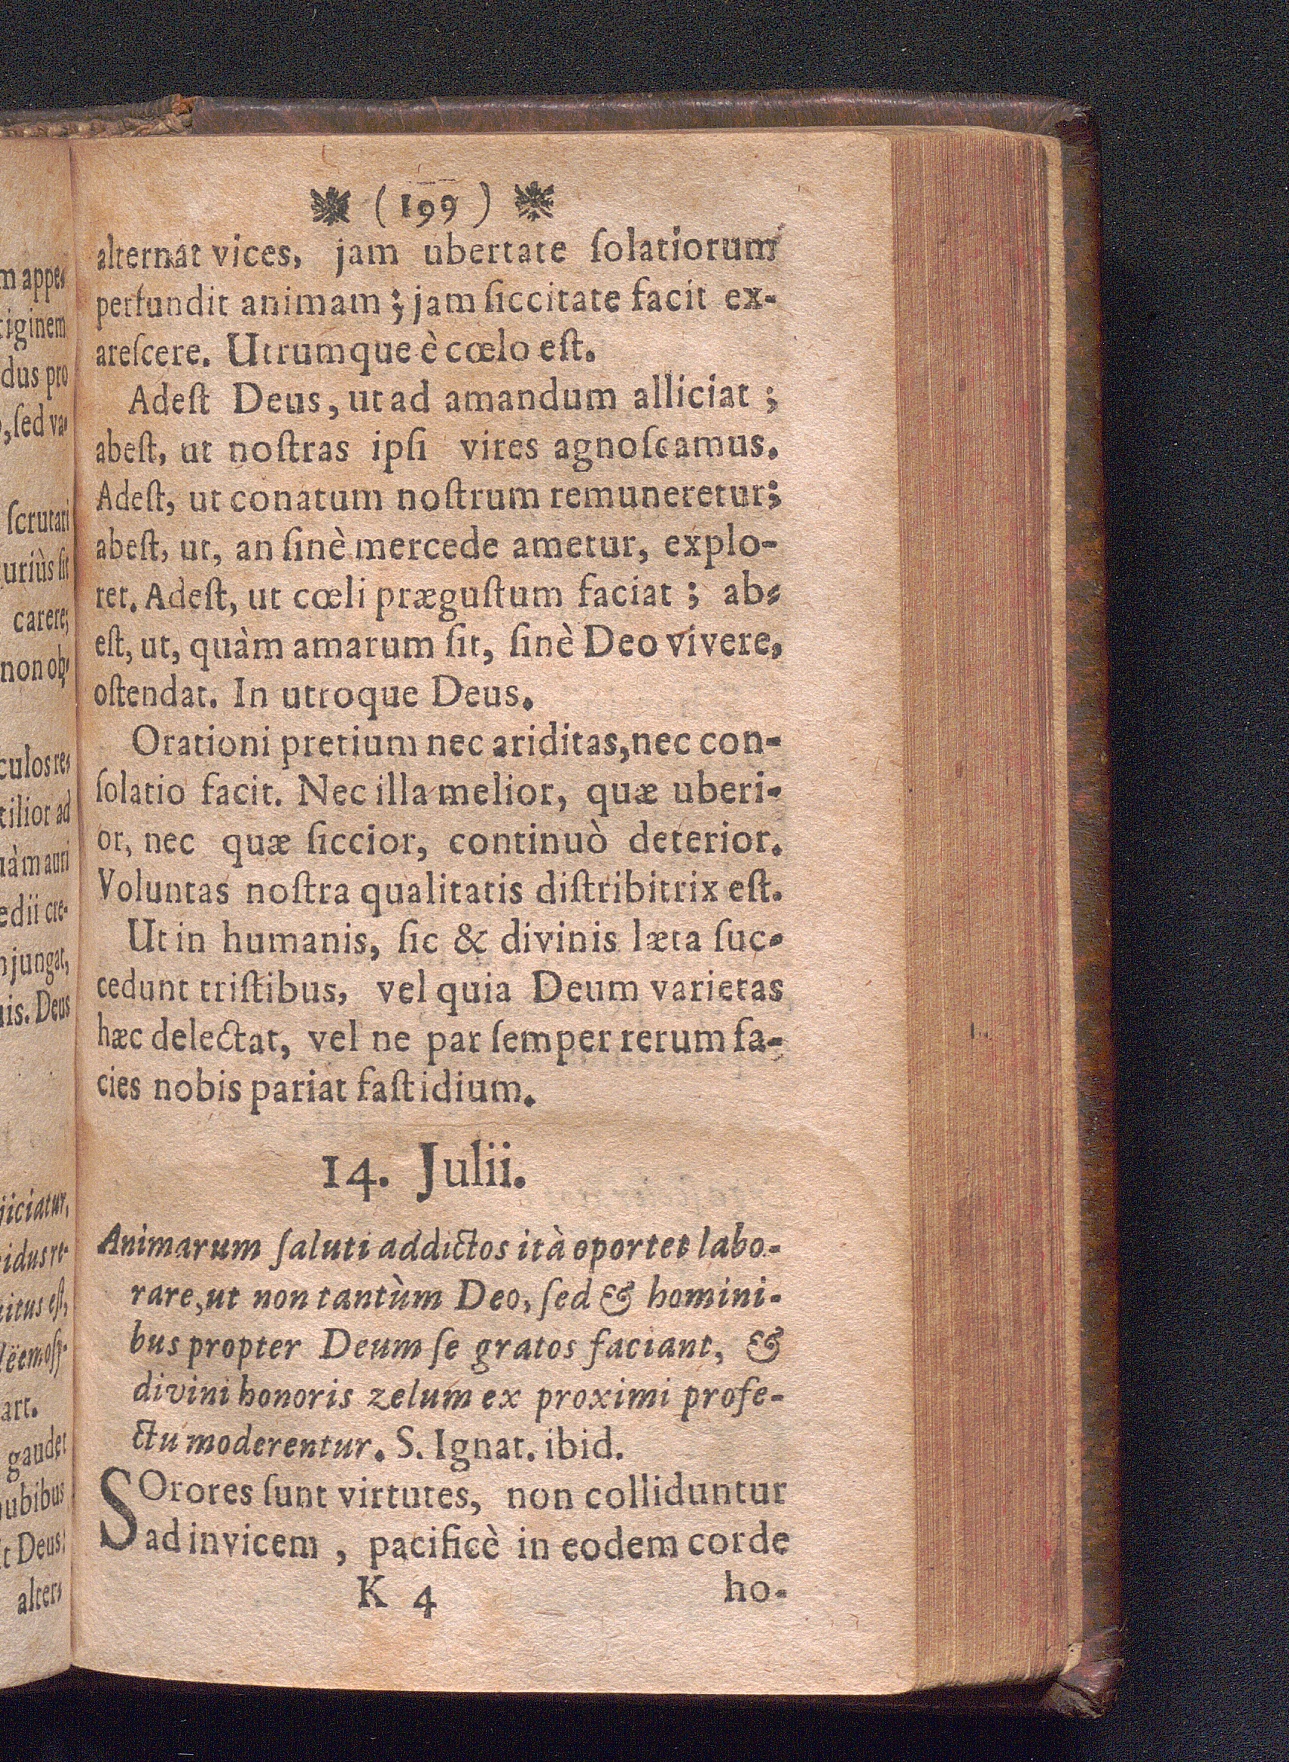 (199)
alternat vices, jam ubertate ſolatiorum
perfundit animam; jam ſiccitate facit ex-
areſcere. Utrumque è cœlo eſt.
Adeſt Deus, ut ad amandum alliciat;
abeſt, ut noſtras ipſi vires agnoſcamus.
Adeſt, ut conatum noſtrum remuneretur;
abeſt, ut, an ſinè mercede ametur, explo-
ret. Adeſt, ut cœli præguſtum faciat; ab-
eſt, ut, quàm amarum ſit, ſinè Deo vivere,
oſtendat. In utroque Deus.
Orationi pretium nec ariditas, nec con-
ſolatio facit. Nec illa melior, quæ uberi-
or, nec quæ ſiccior, continuò deterior.
Voluntas noſtra qualitatis diſtribitrix eſt.
Ut in humanis, ſic & divinis læta ſuc-
cedunt triſtibus, vel quia Deum varietas
hæc delectat, vel ne par ſemper rerum fa-
cies nobis pariat faſtidium.
14. Julii.
Animarum ſaluti addictos ità oportet labo-
rare, ut non tantùm Deo, ſed & homini-
bus propter Deum ſe gratos faciant, &
divini honoris zelum ex proximi profe-
ctu moderentur. S. Ignat. ibid.
SOrores ſunt virtutes, non colliduntur
ad invicem, pacificè in eodem corde
K 4 ho-